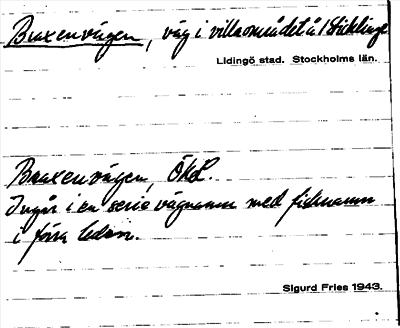 Braxenvägen, väg i villaområdet å Stocklinge
Lidingö stad. Stockholms län.
Braxenvägen, ÖKL.
Ingår i en serie vägnamn med fisknamn
i förra leden.
Sigurd Fries 1943.